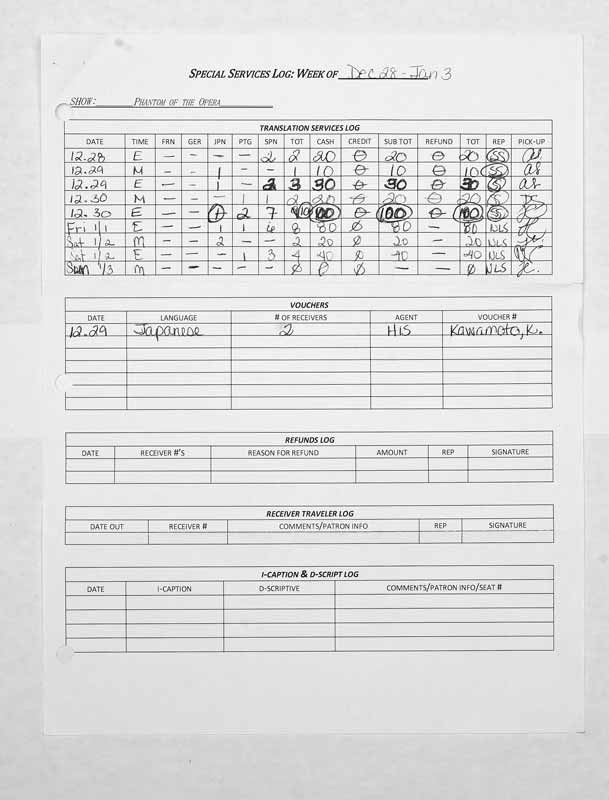 SPECIAL SERVICES LOG: WEEK OF Dec 28 - Jan 3
SHOW: PHANTOM OF THE OPERA
TRANSLATION SERVICES LOG
DATE TIME FRN GER JPN PTG SPN TOT CASH CREDIT SUB TOT REFUND TOT REP PICK-UP
12.28 E - - - - 2 2 20 0 20 0 20 SS as.
12.29 M - - 1 - - 1 10 0 10 0 10 SS as
12.29 E - - 1 - 2 3 30 0 30 0 30 SS as
12.30 M - - - 1 1 2 20 0 20 0 20 SS
12.30 E - - 1 2 7 10 100 0 100 0 100 SS
Fri 1/1 E - - 1 1 6 8 80 Ø 80 - 80 NLS
Sat 1/2 M - - 2 - - 2 20 Ø 20 - 20 NLS
Sat 1/2 E - - - 1 3 4 40 Ø 40 - 40 NLS
Sun 1/3 M - - - - - Ø 0 Ø - - Ø NLS JC.
VOUCHERS
DATE LANGUAGE # OF RECEIVERS AGENT VOUCHER #
12.29 Japanese 2 HIS Kawamoto, K.
REFUNDS LOG
DATE RECEIVER #'S REASON FOR REFUND AMOUNT REP SIGNATURE
RECEIVER TRAVELER LOG
DATE OUT RECEIVER # COMMENTS/PATRON INFO REP SIGNATURE
I-CAPTION & D-SCRIPT LOG
DATE I-CAPTION D-SCRIPTIVE COMMENTS/PATRON INFO/SEAT #